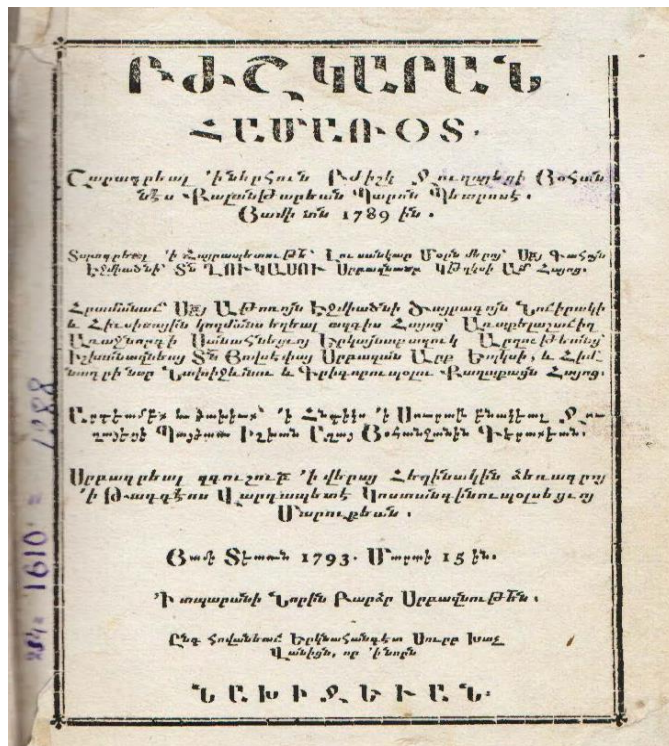 ԲԺՇԿԱՐԱՆ
ՀԱՄԱՌՕՏ.
Շարագրեալ 'ի ներհուն Բժիշկ Ջուղայեցի Յօհան
նէս Քալանթարեան Պարոն Պետրոսէ.
Յամի տն 1789 ին.
Տպագրեալ 'ի Հայրապետութե՟ Լուսանկար Մօրն մերոյ Սբյ Գահոյն
Էջմիածնի Տն ՂՈՒԿԱՍՈՒ Սրբազնասր Կթղկսի Ամ Հայոց.
Հրամանաւ Սբյ Աթոռոյն Էջմիածնի Ծայրագոյն Նուիրակի
և Հիւսիսային կողմանս եղեալ ազգիս Հայոց Առաքելաշաւիղ
Առաջնորդի Սանահնեցւոյ Երկայնաբազուկ Արղութեանց
Իշխանազնեայ Տն Յովսեփայ Սրբազան Արք Եպկսի, և Հիմ
նադրի նոր Նախիջևանու և Գրիգորուպօլու Քաղաքացն Հայոց.
Արդեամբք և ծախիւք 'ի Հնդիկս 'ի Սուրաթ բնակեալ Ջու
ղայեցի Պայծառ Իշխան Աղայ Յօհանջանին Գևրգեան.
Սրբագրեալ զգուշութբ 'ի վերայ Հեղինակին ձեռագրոյ
'ի Թադդէոս Վարդապետէ Կոստանդինուպօլսեցւոյ
Մարուքեան.
Յամի Տեառն 1793. Մարտի 15 ին.
'Ի տպարանի Նորին Բարձր Սրբազնութեն.
Ընդ հովանեաւ Երկնահանգէտ Սուրբ Խաչ
Վանիցն, որ 'ի նորն
ՆԱԽԻՋԵՒԱՆ.
1610 = 1288